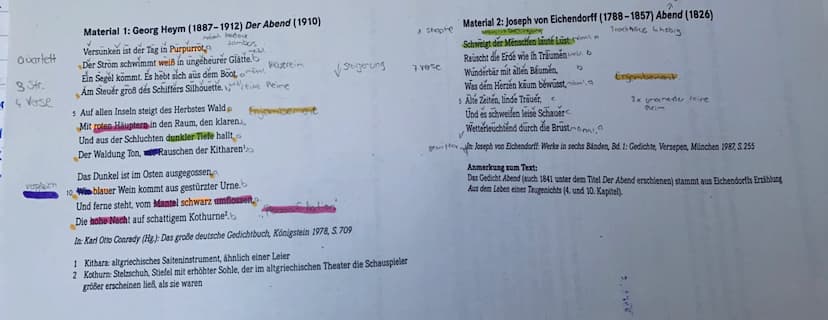 Material 1: Georg Heym (1887–1912) Der Abend (1910)
Versunken ist der Tag in Purpurrot,
Der Strom schwimmt weiß in ungeheurer Glätte.
Ein Segel kommt. Es hebt sich aus dem Boot
Am Steuer groß des Schiffers Silhouette.
Quartett
3 Str.
4 Verse
5 Auf allen Inseln steigt des Herbstes Wald
Mit roten Häuptern in den Raum, den klaren.
Und aus der Schluchten dunkler Tiefe hallt
Der Waldung Ton, Rauschen der Kitharen¹.
Das Dunkel ist im Osten ausgegossen,
10 blauer Wein kommt aus gestürzter Urne.
Und ferne steht, vom Mantel schwarz umflossen,
Die hohe Nacht auf schattigem Kothurne².
In: Karl Otto Conrady (Hg.): Das große deutsche Gedichtbuch, Königstein 1978, S. 709
1 Kithara: altgriechisches Saiteninstrument, ähnlich einer Leier
2 Kothurn: Stelzschuh, Stiefel mit erhöhter Sohle, der im altgriechischen Theater die Schauspieler
größer erscheinen ließ, als sie waren
Material 2: Joseph von Eichendorff (1788–1857) Abend (1826)
1 Strophe
7 Verse
Schweigt der Menschen laute Lust:
Rauscht die Erde wie in Träumen
Wunderbar mit allen Bäumen,
Was dem Herzen kaum bewusst,
5 Alte Zeiten, linde Trauer,
Und es schweifen leise Schauer
Wetterleuchtend durch die Brust.
In: Joseph von Eichendorff: Werke in sechs Bänden, Bd. 1: Gedichte, Versepen, München 1987, S. 255
Anmerkung zum Text:
Das Gedicht Abend (auch 1841 unter dem Titel Der Abend erschienen) stammt aus Eichendorffs Erzählung
Aus dem Leben eines Taugenichts (4. und 10. Kapitel).